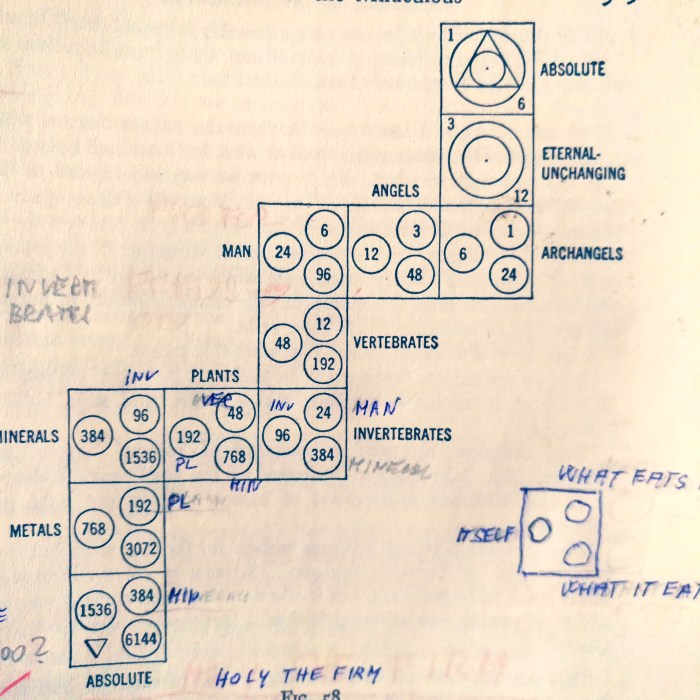 1
6
ABSOLUTE
3
12
ETERNAL-
UNCHANGING
ANGELS
MAN
24
6
96
12
3
48
6
1
24
ARCHANGELS
INVERTE
BRATES
48
12
192
VERTEBRATES
INV
PLANTS
MINERALS
384
96
1536
192
48
768
PL
MIN
INV
96
24
384
MAN
INVERTEBRATES
MINERAL
WHAT EATS
METALS
768
192
3072
PL
ITSELF
WHAT IT EAT
1536
384
6144
MIN
MINERALS
ABSOLUTE
HOLY THE FIRM
FIG. 58